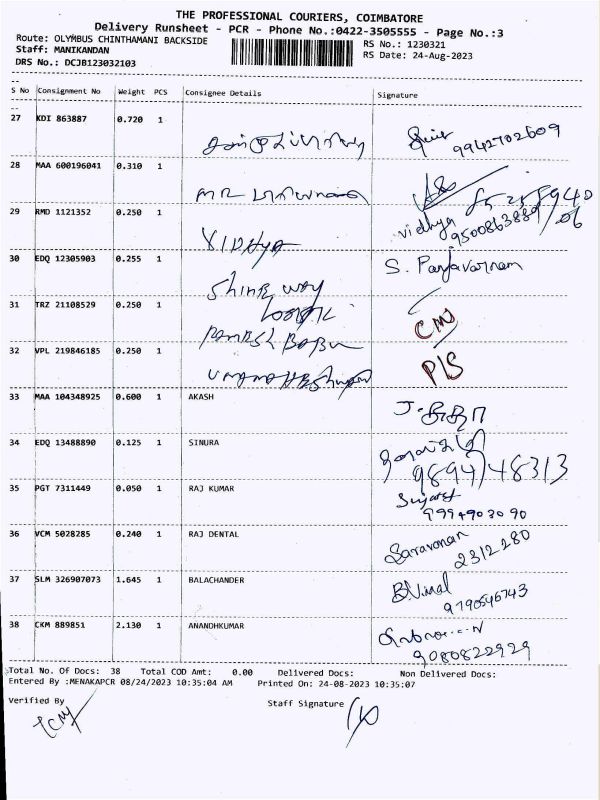 THE PROFESSIONAL COURIERS, COIMBATORE
Delivery Runsheet - PCR - Phone No.:0422-3505555 - Page No.:3
Route: OLYMBUS CHINTHAMANI BACKSIDE
RS No.: 1230321
Staff: MANIKANDAN
RS Date: 24-Aug-2023
DRS No.: DCJB123032103
S No Consignment No Weight PCS Consignee Details Signature
27 KDI 863887 0.720 1
9942702609
28 MAA 600196041 0.310 1
MR
29 RMD 1121352 0.250 1
vidhya
9500863889
VIDHYA
30 EDQ 12305903 0.255 1
S. Panjavarnam
Shine way
31 TRZ 21108529 0.250 1
CMJ
Ramesh Babu
32 VPL 219846185 0.250 1
P/S
33 MAA 104348925 0.600 1 AKASH
34 EDQ 13488890 0.125 1 SINURA
9894748313
35 PGT 7311449 0.050 1 RAJ KUMAR
Sujatha
9994903090
36 VCM 5028285 0.240 1 RAJ DENTAL
Saravanan
2312280
37 SLM 326907073 1.645 1 BALACHANDER
B.Vimal
9790546743
38 CKM 889851 2.130 1 ANANDHKUMAR
9080822929
Total No. Of Docs: 38 Total COD Amt: 0.00 Delivered Docs: Non Delivered Docs:
Entered By :MENAKAPCR 08/24/2023 10:35:04 AM Printed On: 24-08-2023 10:35:07
Verified By Staff Signature